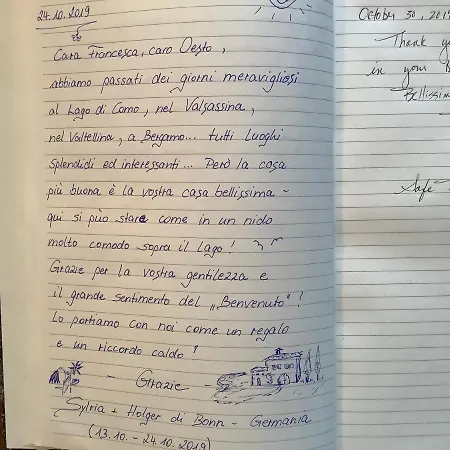 24.10.2019
Cara Francesca, caro Oesto,
abbiamo passati dei giorni meravigliosi
al Lago di Como, nel Valsassina,
nel Valtellina, a Bergamo... tutti Luoghi
splendidi ed interessanti... Però la cosa
più buona è la vostra casa bellissima -
qui si può stare come in un nido
molto comodo sopra il Lago!
Grazie per la vostra gentilezza e
il grande sentimento del „Benvenuto"!
Lo portiamo con noi come un regalo
e un riccordo caldo!
- Grazie -
Sylvia + Holger di Bonn - Germania
(13.10. - 24.10.2019)
October 30, 2019
Thank
in your
Safe